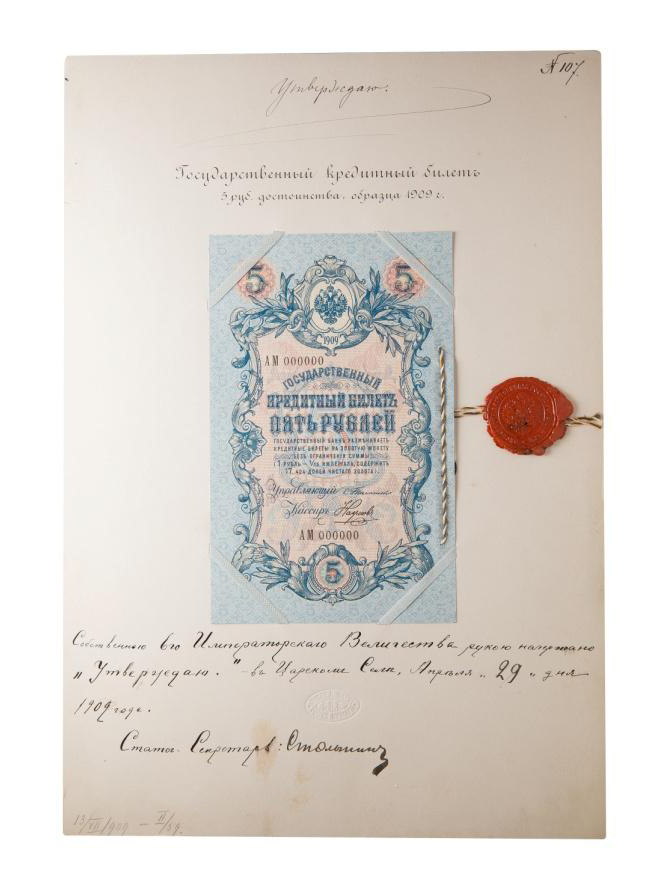 № 107.
Утверждаю.
Государственный кредитный билетъ
5 руб. достоинства, образца 1909 г.
5 5
1909
АМ 000000
ГОСУДАРСТВЕННЫЙ
КРЕДИТНЫЙ БИЛЕТЪ
ПЯТЬ РУБЛЕЙ
ГОСУДАРСТВЕННЫЙ БАНКЪ РАЗМѢНИВАЕТЪ
КРЕДИТНЫЕ БИЛЕТЫ НА ЗОЛОТУЮ МОНЕТУ
БЕЗЪ ОГРАНИЧЕНІЯ СУММЫ
(1 РУБЛЬ = 1/15 ИМПЕРІАЛА, СОДЕРЖИТЪ
17,424 ДОЛЕЙ ЧИСТАГО ЗОЛОТА).
Управляющій
Кассиръ Наумовъ
АМ 000000
5
Собственною Его Императорскаго Величества рукою начертано
„Утверждаю." въ Царскомъ Селѣ, Апрѣля „29" дня
1909 года.
Статсъ-Секретарь: Столыпинъ
13/VII/909 – II/59.